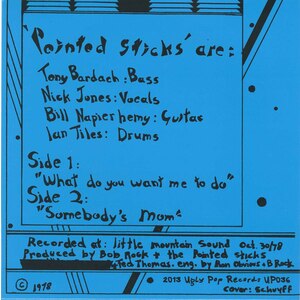 'Pointed Sticks' are:
Tony Bardach: Bass
Nick Jones: Vocals
Bill Napier hemy: Guitar
Ian Tiles: Drums
Side 1:
"What do you want me to do"
Side 2:
"Somebody's Mom"
Recorded at: little mountain Sound Oct. 30/78
Produced by Bob Rock + the Pointed Sticks
+ Ted Thomas. eng. by Ron Obvious + B. Rock.
© 1978
2013 Ugly Pop Records UP036
cover: Schuyff